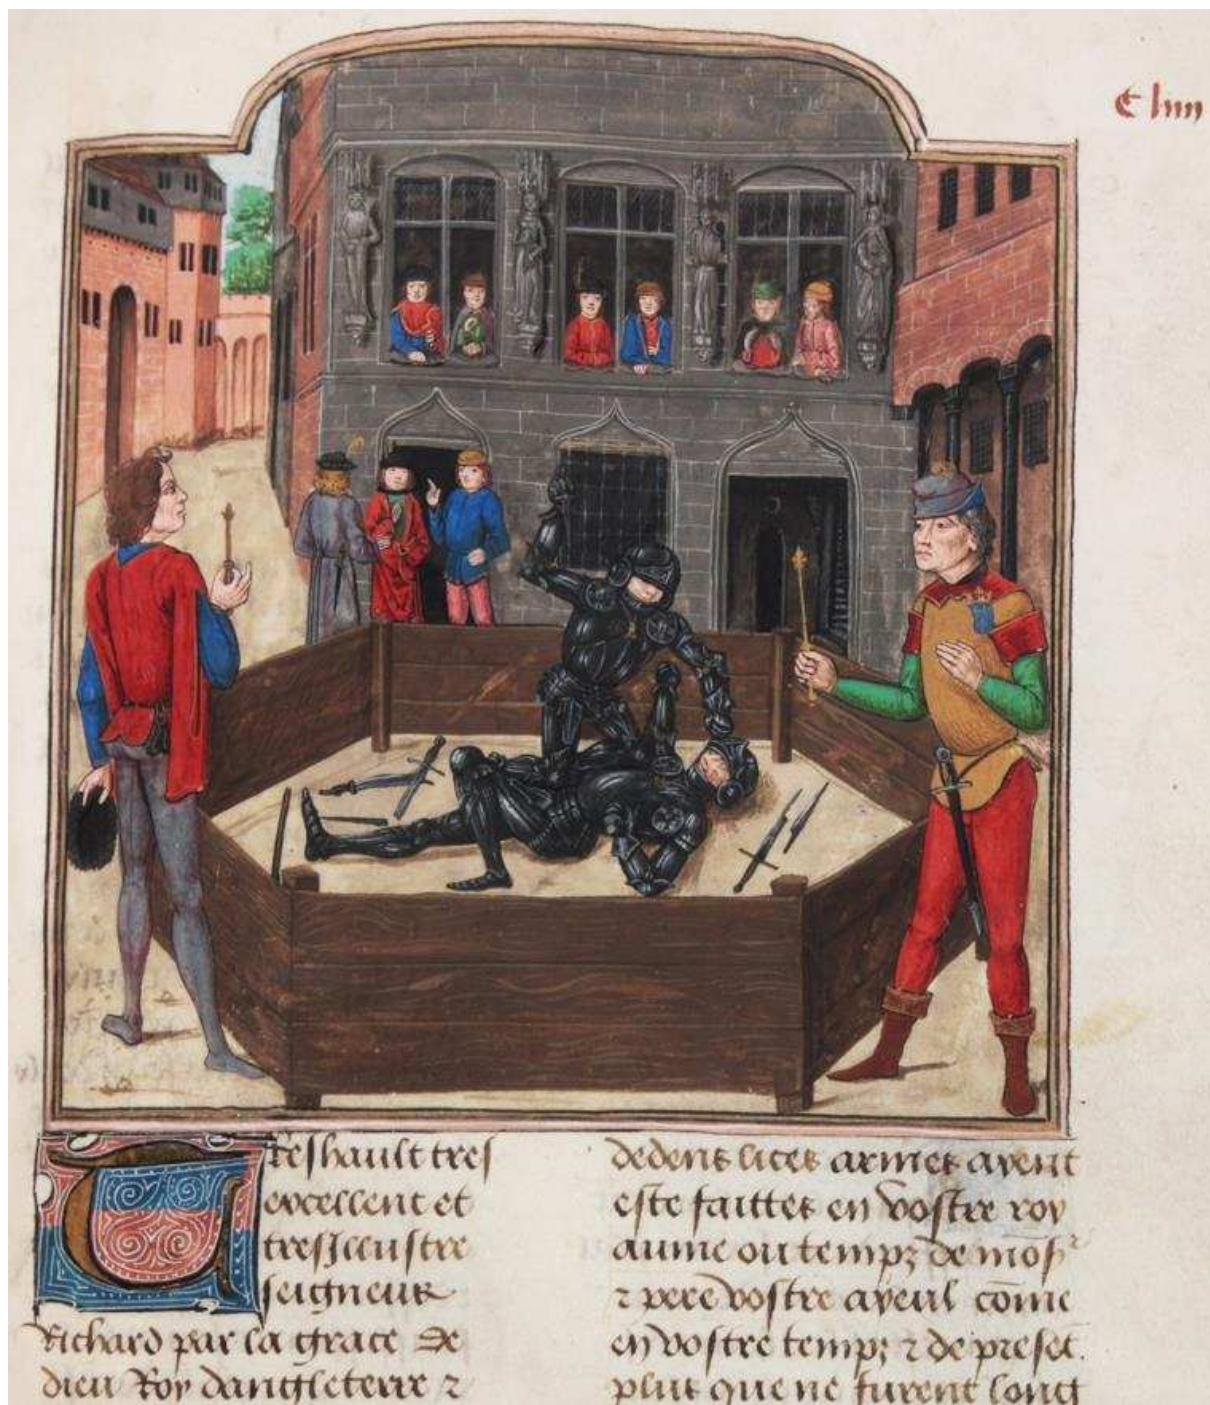 Treshault tres
excellent et
tresillustre
seigneur
Richard par la grace de
dieu Roy dangleterre ⁊
dedens lices armes ayent
este faittes en vostre roy
aume ou temps de mosʳ
⁊ pere vostre ayeul cōme
en vostre temps ⁊ de preset.
plus que ne furent long